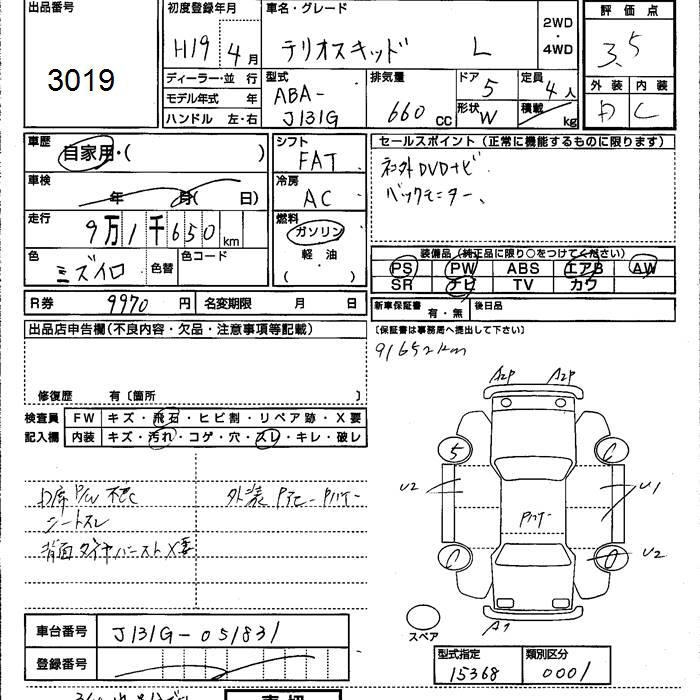 出品番号
3019
初度登録年月
H19 4月
車名・グレード
テリオスキッド L
2WD
・
4WD
評価点
3.5
ディーラー・並行
モデル年式 年
ハンドル 左・右
型式
ABA-
J131G
排気量
660 CC
ドア 5
形状 W
定員 4人
積載 kg
外装 内装
D C
車歴
自家用・( )
車検
年 月( 日)
走行
9万1千650km
色
ミズイロ
色替
色コード
シフト
FAT
冷房
AC
燃料
ガソリン
軽・油
( )
セールスポイント(正常に機能するものに限ります)
ネ外DVDナビ
バックモニター、
装備品(純正品に限り○をつけてください)
PS PW ABS エアB AW
SR ナビ TV カワ
R券 9970円
名変期限 月 日
新車保証書 有・無
後日品
出品店申告欄(不良内容・欠品・注意事項等記載)
(保証書は事務局へ提出して下さい)
91652km
修復歴 有〔箇所 〕
検査員
記入欄
FW キズ・飛石・ヒビ割・リペア跡・X要
内装 キズ・汚れ・コゲ・穴・スレ・キレ・破レ
シートスレ
背面タイヤバーストX要
A2P A2P
5 C
U2 U1
C 0
U2
A1
スペア
車台番号 J131G-051831
登録番号
型式指定 15368
類別区分 0001